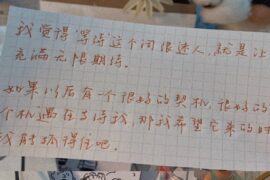 我觉得“等待”这个词很迷人，就是让
充满无限期待。
如果以后有一个很好的契机，很好的
个机遇在等待我，那我希望它来的时
我能抓得住吧。